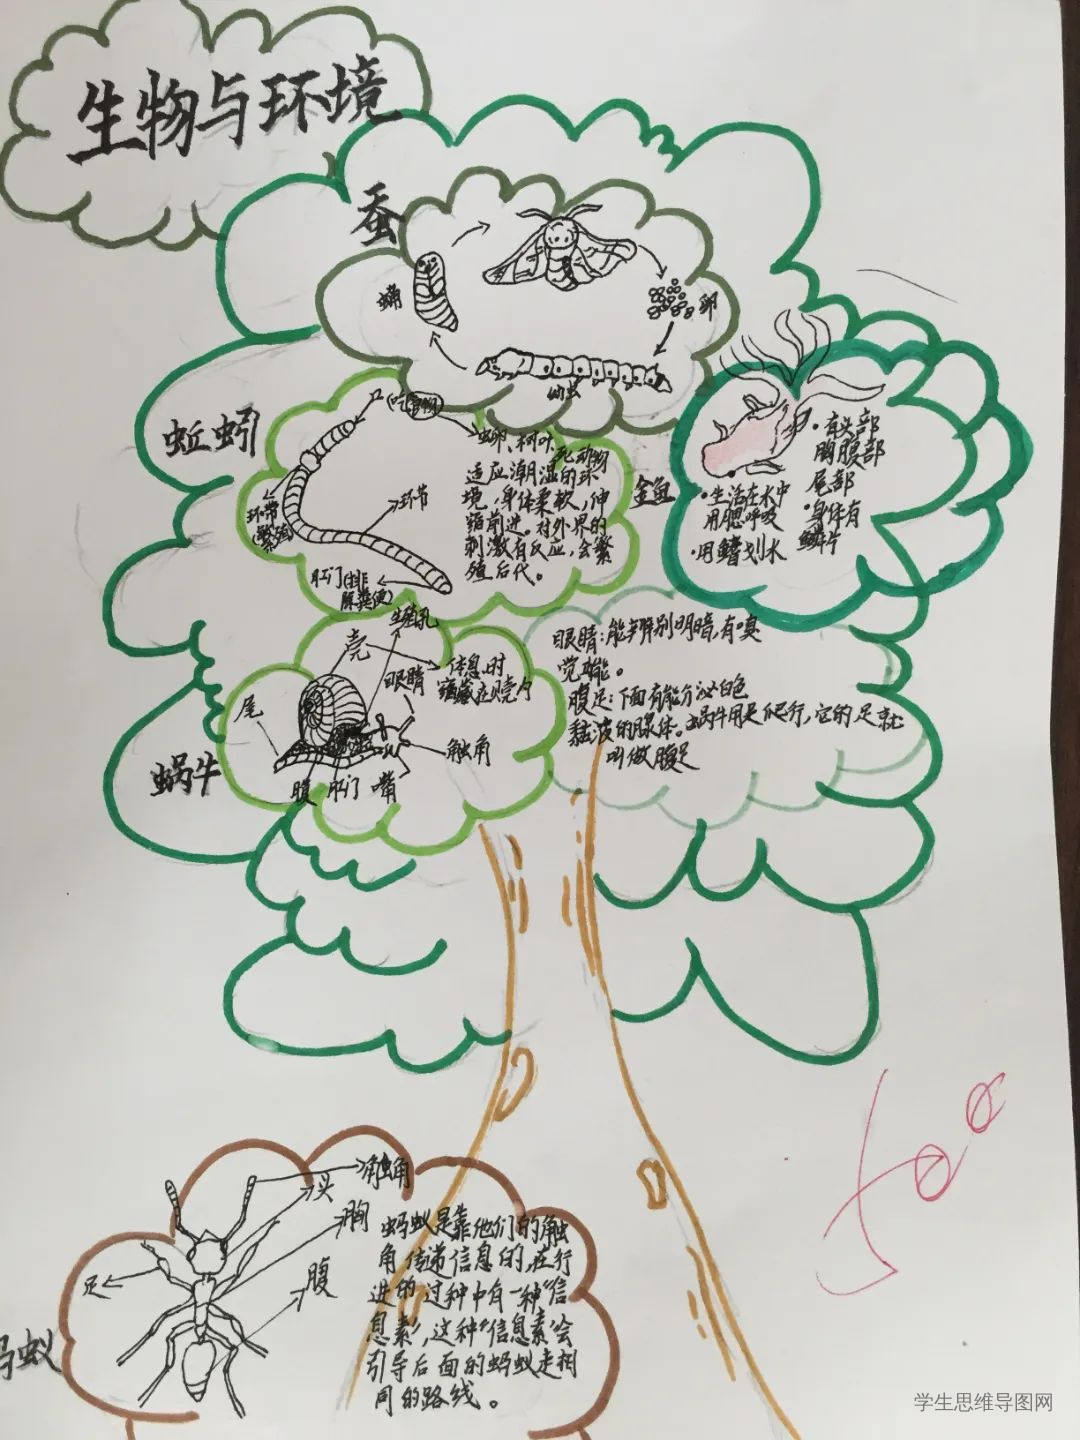 生物与环境
蚕
蛹
卵
幼虫
蚯蚓
口(吃食物)
虫卵、树叶、死动物
适应潮湿的环
境,身体柔软,伸
缩前进。对外界的
刺激有反应,会繁
殖后代。
环节
环带
(繁殖)
肛门(排
尿粪便)
金鱼
·有头部
胸腹部
尾部
·身体有
鳞片
·生活在水中
用腮呼吸
·用鳍划水
蜗牛
生殖孔
壳
体息时
眼睛
尾
触角
腹
肛门
嘴
眼睛:能辨别明暗,有嗅
觉功能。
腹足:下面有能分泌白色
黏液的腺体。蜗牛用足爬行,它的足就
叫做腹足
蚂蚁
触角
头
胸
腹
足
蚂蚁是靠他们的触
角传递信息的,在行
进的过种中有一种“信
息素”,这种“信息素”会
引导后面的蚂蚁走相
同的路线。
学生思维导图网